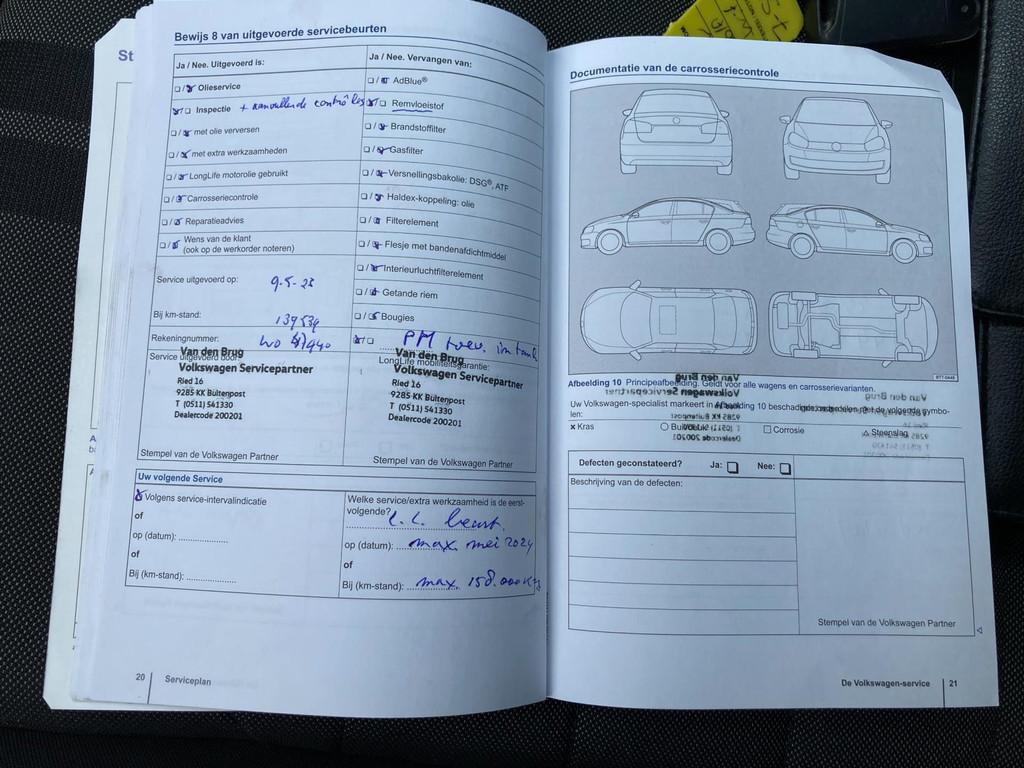 St
Bewijs 8 van uitgevoerde servicebeurten
Ja / Nee. Uitgevoerd is:
Ja / Nee. Vervangen van:
Olieservice
AdBlue®
Inspectie + aanvullende contrôles
Remvloeistof
met olie verversen
Brandstoffilter
met extra werkzaamheden
Gasfilter
LongLife motorolie gebruikt
Versnellingsbakolie: DSG®, ATF
Carrosseriecontrole
Haldex-koppeling: olie
Reparatieadvies
Filterelement
Wens van de klant
(ook op de werkorder noteren)
Flesje met bandenafdichtmiddel
Interieurluchtfilterelement
Service uitgevoerd op: 9-5-23
Getande riem
Bij km-stand: 139539
Bougies
Rekeningnummer:
PM toev. in tank
Service uitgevoerd door:
LongLife mobiliteitsgarantie:
Van den Brug
Volkswagen Servicepartner
Ried 16
9285 KK Buitenpost
T (0511) 541330
Dealercode 200201
Van den Brug
Volkswagen Servicepartner
Ried 16
9285 KK Buitenpost
T (0511) 541330
Dealercode 200201
Stempel van de Volkswagen Partner
Stempel van de Volkswagen Partner
Uw volgende Service
Volgens service-intervalindicatie
of
op (datum):
of
Bij (km-stand):
Welke service/extra werkzaamheid is de eerst-
volgende?
L.L. beurt.
op (datum): max. mei 2024
of
Bij (km-stand): max. 158.000 km
20 Serviceplan
Documentatie van de carrosseriecontrole
Afbeelding 10 Principeafbeelding. Geldt voor alle wagens en carrosserievarianten.
Uw Volkswagen-specialist markeert in Afbeelding 10 beschadigde onderdelen met de volgende symbo-
len:
x Kras
Corrosie
Steenslag
Defecten geconstateerd? Ja: Nee:
Beschrijving van de defecten:
Stempel van de Volkswagen Partner
De Volkswagen-service 21